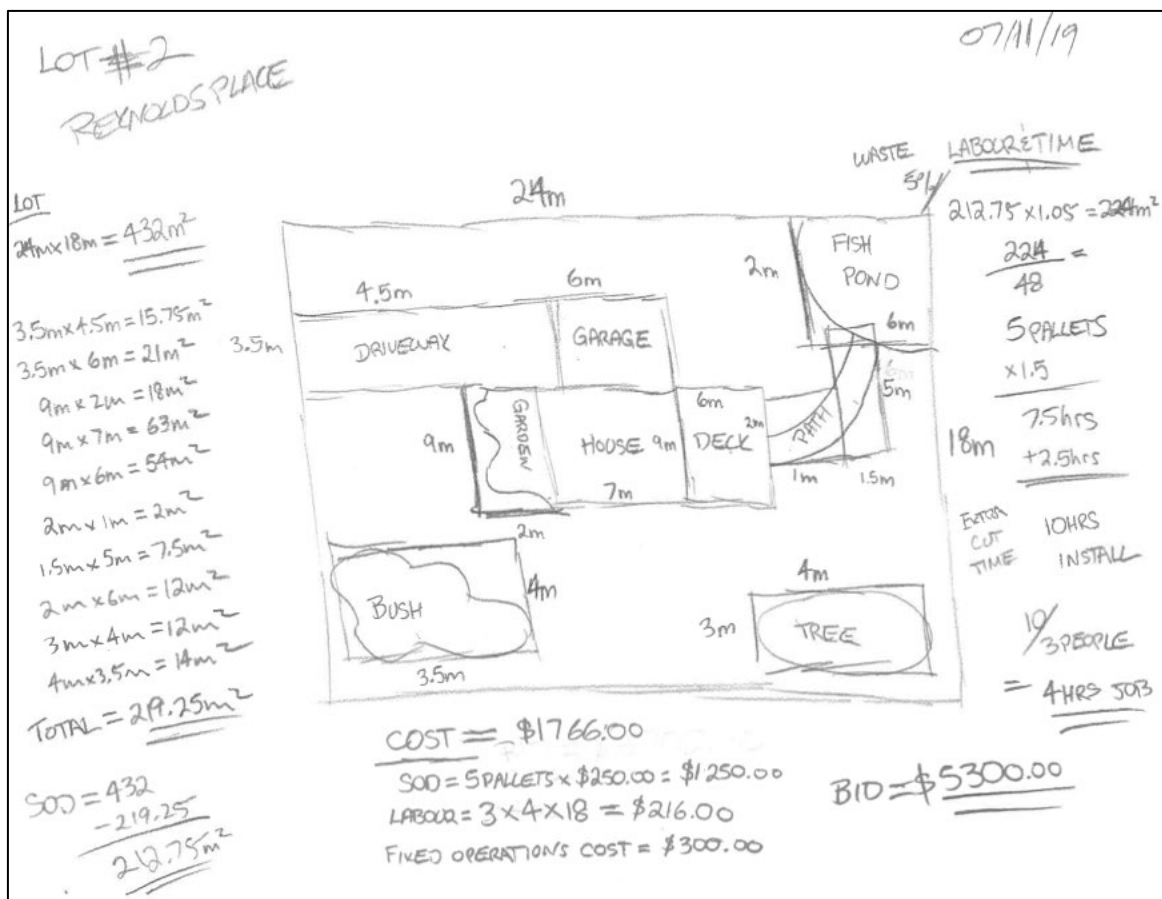 LOT #2
REYNOLDS PLACE
07/11/19
LOT
24m x 18m = 432m²
3.5m x 4.5m = 15.75m²
3.5m x 6m = 21m²
9m x 2m = 18m²
9m x 7m = 63m²
9m x 6m = 54m²
2m x 1m = 2m²
1.5m x 5m = 7.5m²
2m x 6m = 12m²
3m x 4m = 12m²
4m x 3.5m = 14m²
TOTAL = 219.25m²
SOD = 432
-219.25
212.75m²
24m
4.5m
6m
3.5m
DRIVEWAY
GARAGE
2m
FISH
POND
6m
5m
9m
GARDEN
HOUSE
9m
6m
2m
DECK
PATH
7m
1m
1.5m
18m
2m
BUSH
4m
3.5m
4m
3m
TREE
WASTE
5%
LABOUR & TIME
212.75 x 1.05 = 224m²
224
48
=
5 PALLETS
x1.5
7.5hrs
+2.5hrs
EXTRA
CUT
TIME
10HRS
INSTALL
10/3 PEOPLE
= 4HRS JOB
COST = $1766.00
SOD = 5 PALLETS x $250.00 = $1250.00
LABOUR = 3 x 4 x 18 = $216.00
FIXED OPERATIONS COST = $300.00
BID = $5300.00